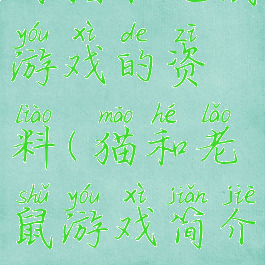 yóu xì de zī
游戏的资
liào māo hé lǎo
料(猫和老
shǔ yóu xì jiǎn jiè
鼠游戏简介